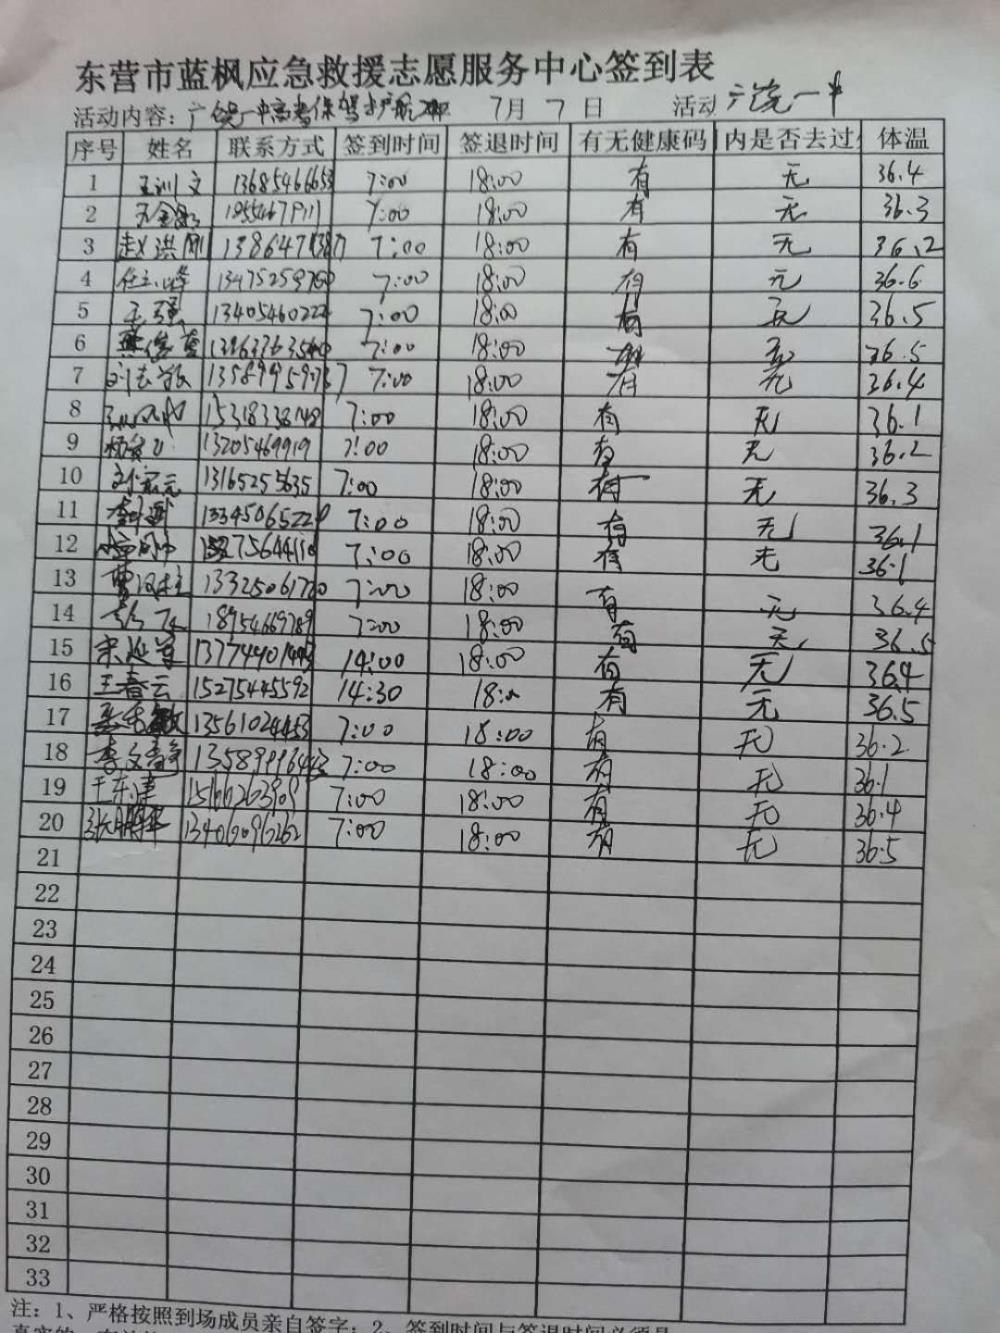 东营市蓝枫应急救援志愿服务中心签到表
活动内容：广饶一中高考保驾护航 7月7日 活动 广饶一中
序号 姓名 联系方式 签到时间 签退时间 有无健康码 内是否去过 体温
1 王训文 13685466653 7:00 18:00 有 无 36.4
2 7:00 18:00 有 无 36.3
3 赵洪刚 7:00 18:00 有 无 36.2
4 13475259760 7:00 18:00 有 无 36.6
5 王强 13405460222 7:00 18:00 有 无 36.5
6 7:00 18:00 有 无 36.5
7 7:00 18:00 有 无 36.4
8 15318338148 7:00 18:00 有 无 36.1
9 13205469919 7:00 18:00 有 无 36.2
10 13165255635 7:00 18:00 有 无 36.3
11 7:00 18:00 有 无 36.1
12 7:00 18:00 有 无 36.1
13 13325061720 7:00 18:00 有 无 36.4
14 18954669789 7:00 18:00 有 无 36.5
15 宋延尊 14:00 18:00 有 无 36.4
16 王春云 15275445592 14:30 18:00 有 无 36.5
17 13561024453 7:00 18:00 有 无 36.2
18 李文静 7:00 18:00 有 无 36.1
19 王东建 15166263909 7:00 18:00 有 无 36.4
20 13406096262 7:00 18:00 有 无 36.5
21
22
23
24
25
26
27
28
29
30
31
32
33
注：1、严格按照到场成员亲自签字；2、签到时间与签退时间必须是